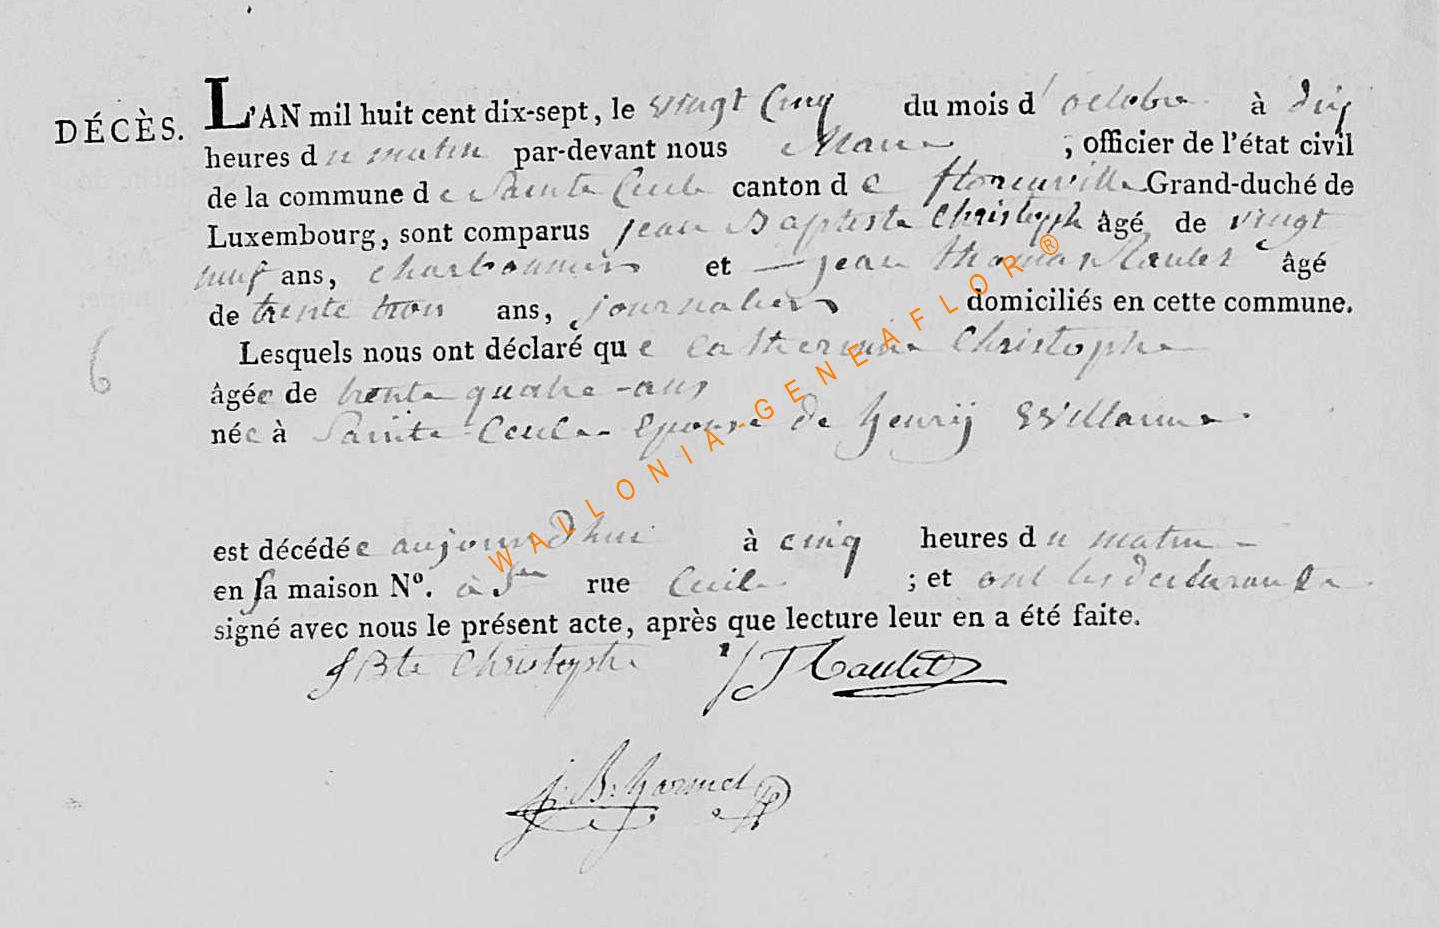 DÉCÈS. L'AN mil huit cent dix-sept, le vingt Cinq du mois d'octobre à dix
heures du matin par-devant nous Maire ; officier de l'état civil
de la commune de Sainte Cecile canton de florenville Grand-duché de
Luxembourg, sont comparus jean Baptiste Christoph âgé de vingt
neuf ans, charbonnier et jean thomas âgé
de trente trois ans, journalier domiciliés en cette commune.
6
Lesquels nous ont déclaré que catherinne Christophe
âgée de trente quatre ans
née à Sainte Cecile Epouse de henrij Willaume
est décédée aujourd'hui à cinq heures du matin
en sa maison N°. à Ste rue Cecile ; et ont les declarants
signé avec nous le présent acte, après que lecture leur en a été faite.
JBte Christophe
WALLONIA-GENEAFLOR®